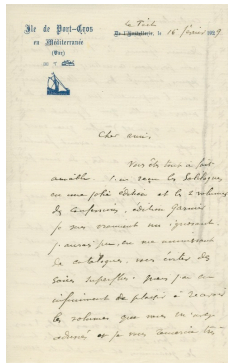 Ile de Port-Cros
en Méditerranée
(Var)
le 16 février 1929.
Cher ami,
Vous êtes tout à fait
aimable. J'ai reçu les Soliloques
en une jolie édition et les 2 volumes
des Confessions, édition Garnier
je suis vraiment un ignorant.
j'aurais pu, en me munissant
de catalogues, vous éviter des
soins superflus. mais j'ai eu
infiniment de plaisir à recevoir
les volumes que vous m'avez
adressés et je vous remercie très